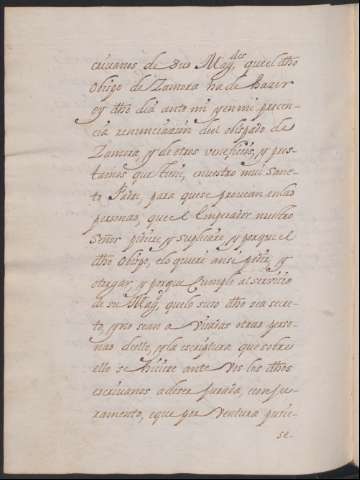 crivanos de sus Mag.des que el dho
Obispo de Zamora ha de hazer
oy dho dia ante mi y en mi presen
cia renunciazion del obispado de
Zamora, y de otros veneficios, y pres
tamos que tiene, en nuestro mui Sanc
to Padre, para que se provean en las
personas, que el Emperador nuestro
Señor pidiere y suplicare, y porque el
dho Obispo, elo quiere ansi pedir, y
otorgar, y porque cumple al servicio
de su Mag, que lo suso dho sea secre
to, y no sean avisadas otras perso
nas dello, y la escriptura que sobre
ello se hiziere ante vos los dhos
escrivanos a de ser jurada, con ju
ramento, e que por ventura pussie
se.